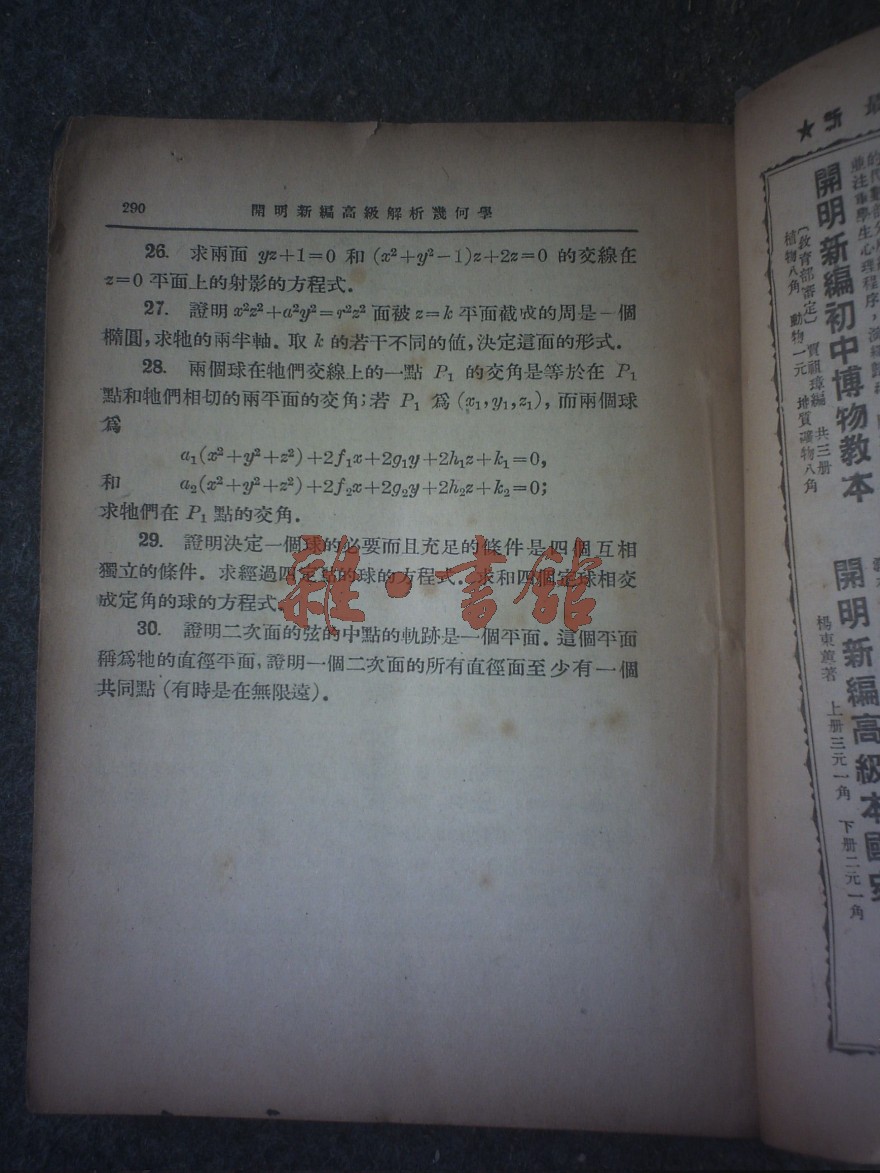 290 開明新編高級解析幾何學
26. 求兩面 yz+1=0 和 (x²+y²−1)z+2z=0 的交線在
z=0 平面上的射影的方程式.
27. 證明 x²z²+a²y²=r²z² 面被 z=k 平面截成的周是一個
橢圓,求牠的兩半軸. 取 k 的若干不同的值,決定這面的形式.
28. 兩個球在牠們交線上的一點 P₁ 的交角是等於在 P₁
點和牠們相切的兩平面的交角;若 P₁ 爲 (x₁,y₁,z₁), 而兩個球
爲
a₁(x²+y²+z²)+2f₁x+2g₁y+2h₁z+k₁=0,
和 a₂(x²+y²+z²)+2f₂x+2g₂y+2h₂z+k₂=0;
求牠們在 P₁ 點的交角.
29. 證明決定一個球的必要而且充足的條件是四個互相
獨立的條件. 求經過四定點的球的方程式. 求和四個定球相交
成定角的球的方程式.
30. 證明二次面的弦的中點的軌跡是一個平面. 這個平面
稱爲牠的直徑平面,證明一個二次面的所有直徑面至少有一個
共同點(有時是在無限遠).
雜·書館
★新 最
並注重學生心理程序,
開明新編初中博物教本
〔教育部審定〕 賈祖璋編 共三册
植物八角 動物一元 地質礦物八角
開明新編高級本國史
楊東蒓著 上册三元一角 下册二元一角